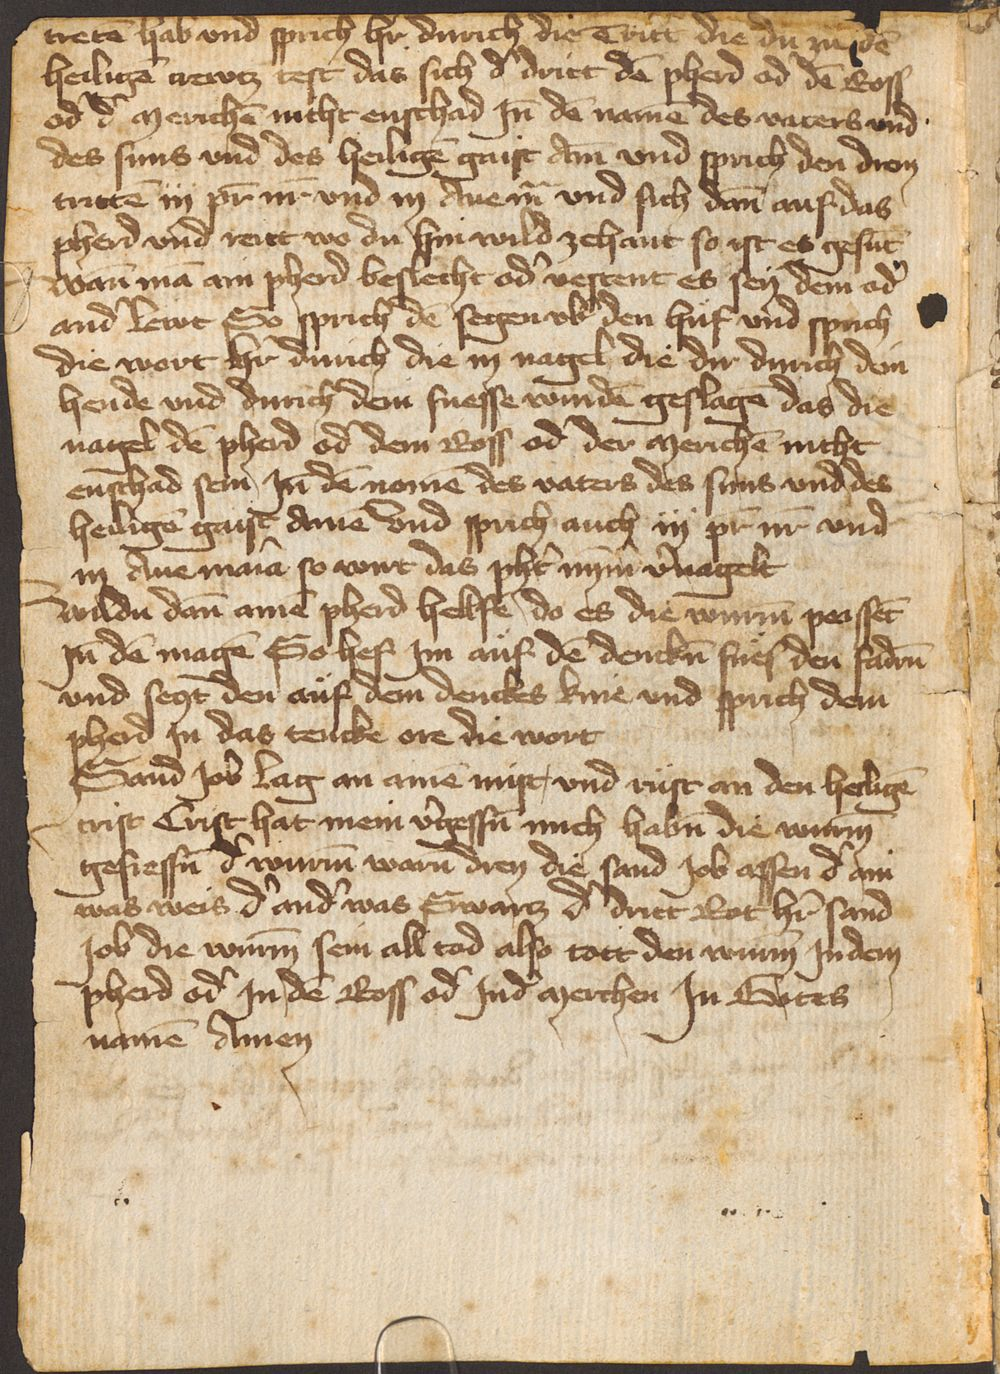 tretē hab vnd sprich hr durich die Tritt die du zu dē
heiligē crewtz test das sich d' dritt dē pherd od' dē Ross
od' d' merichē nicht enschad In dē namē des vaters vnd
des suns vnd des heiligē gaist Am̄ vnd sprich den dreyn
trittē iij pr̄ nr̄ vnd iij Aue m̄ vnd sich dan̄ auf das
pherd vnd reitt wo du hin wild zehant so ist es gesūt
Wan̄ mā ain pherd beslecht od' verrent es sey dem od'
and' lewt So sprich dē segen vb' den huf vnd sprich
die wort hr̄ durich die iij nagel die dir durich dein
hende vnd durich dein fuesse wurdē geslagē das die
nagel dē pherd od' dem Ross od' der merichē nicht
enschad sein In dē namē des vaters des suns vnd des
heiligē gaist Amē vnd sprich auch iij pr̄ nr̄ vnd
iij Aue maria so wirt das pht nȳm' v'nagelt
Wildu dan̄ ainē pherd helfē do es die wurm̄ peissēt
In dē magē So hef Im auf dē dencken̄ fues den fadm̄
vnd secz den auf dem denckes knie vnd sprich dem
pherd In das tencke ore die wort
Sand Job lag an ainē mist vnd rüft an den heiligē
crist Crist hat mein v'gessn̄ mich habn̄ die wurm̄
gefressn̄ d' wurm̄ warn̄ dreỹ die sand Job assen d' ain
was weis d' and' was Swartz d' dritt Rot hr̄ sand
Job die wurm̄ sein all tod also tott den wurm̄ In dem
pherd od' In dē Ross od' In d' merchen In Gotes
namē Amen